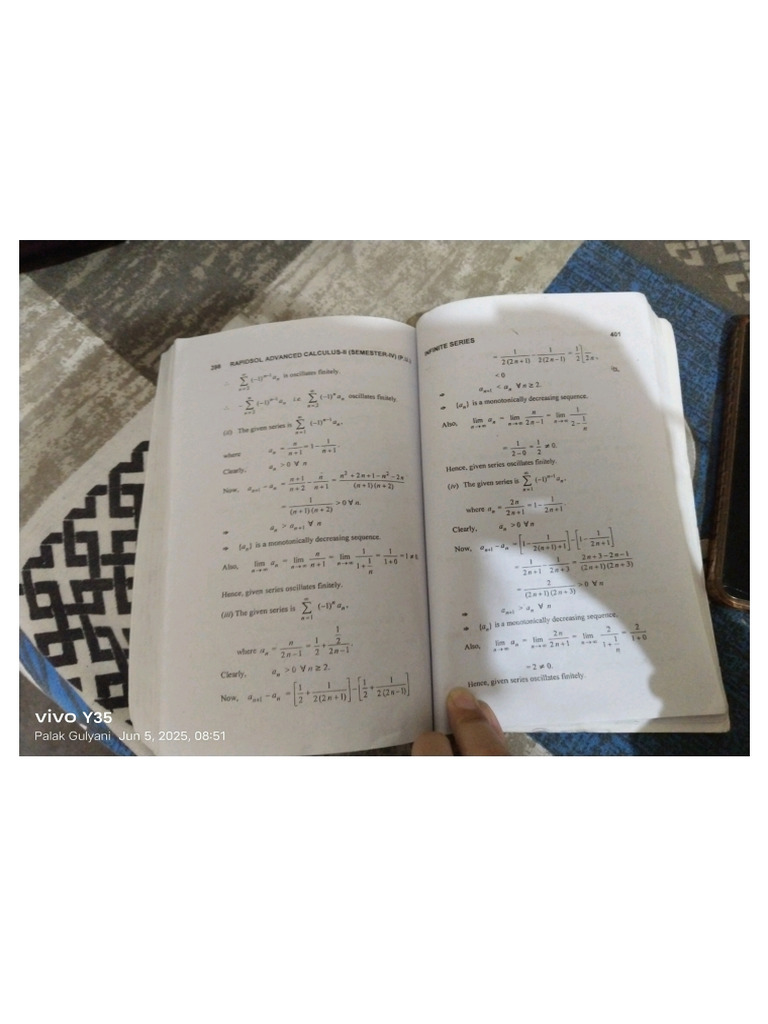 398 RAPIDSOL ADVANCED CALCULUS-II (SEMESTER-IV) (P.U.)
∴ ∑_{n=1}^{∞} (−1)^{n−1} a_n is oscillates finitely.
∴ −∑_{n=1}^{∞} (−1)^{n−1} a_n i.e. ∑_{n=1}^{∞} (−1)^n a_n oscillates finitely.
(ii) The given series is ∑_{n=1}^{∞} (−1)^{n−1} a_n,
where a_n = n/(n+1) = 1 − 1/(n+1).
Clearly, a_n > 0 ∀ n
Now, a_{n+1} − a_n = (n+1)/(n+2) − n/(n+1) = (n²+2n+1−n²−2n)/((n+1)(n+2))
= 1/((n+1)(n+2)) > 0 ∀ n.
⇒ a_n > a_{n+1} ∀ n
⇒ {a_n} is a monotonically decreasing sequence.
Also, lim_{n→∞} a_n = lim_{n→∞} n/(n+1) = lim_{n→∞} 1/(1+1/n) = 1/(1+0) = 1 ≠
Hence, given series oscillates finitely.
(iii) The given series is ∑_{n=1}^{∞} (−1)^n a_n,
where a_n = n/(2n−1) = 1/2 + (1/2)/(2n−1).
Clearly, a_n > 0 ∀ n ≥ 2.
Now, a_{n+1} − a_n = [1/2 + 1/(2(2n+1))] − [1/2 + 1/(2(2n−1))]
INFINITE SERIES 401
= 1/(2(2n+1)) − 1/(2(2n−1)) = 1/2 [
< 0
a_{n+1} < a_n ∀ n ≥ 2.
⇒ {a_n} is a monotonically decreasing sequence.
Also, lim_{n→∞} a_n = lim_{n→∞} n/(2n−1) = lim_{n→∞} 1/(2−1/n)
= 1/(2−0) = 1/2 ≠ 0.
Hence, given series oscillates finitely.
(iv) The given series is ∑_{n=1}^{∞} (−1)^{n−1} a_n,
where a_n = 2n/(2n+1) = 1 − 1/(2n+1).
Clearly, a_n > 0 ∀ n
Now, a_{n+1} − a_n = [1 − 1/(2(n+1)+1)] − [1 − 1/(2n+1)]
= 1/(2n+1) − 1/(2n+3) = (2n+3−2n−1)/((2n+1)(2n+3))
= 2/((2n+1)(2n+3)) > 0 ∀ n
⇒ a_{n+1} > a_n ∀ n
⇒ {a_n} is a monotonically decreasing sequence.
Also, lim_{n→∞} a_n = lim_{n→∞} 2n/(2n+1) = lim_{n→∞} 2/(1+1/n) = 2/(1+0)
= 2 ≠ 0.
Hence, given series oscillates finitely.
vivo Y35
Palak Gulyani Jun 5, 2025, 08:51